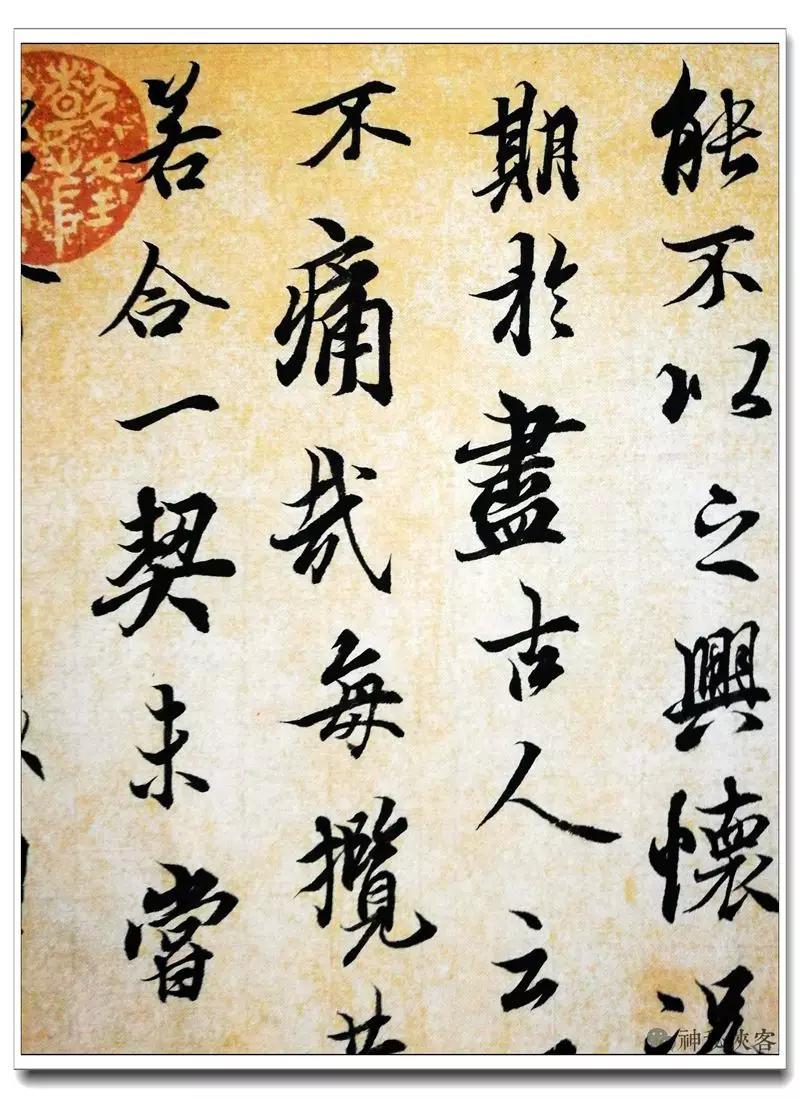 能不以之興懷況
期於盡古人云
不痛哉每攬昔
若合一契未嘗
神秘俠客